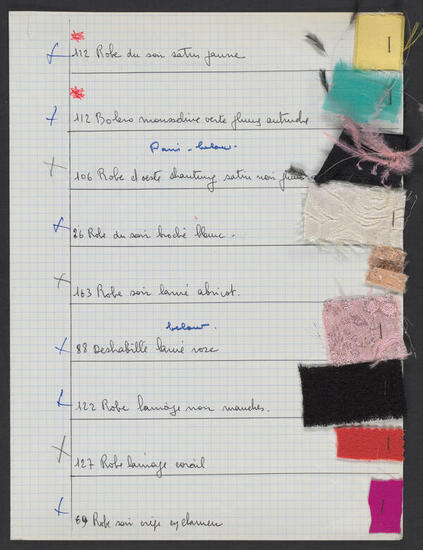 112 Robe du soir satin jaune
112 Bolero mousseline verte plumes autruche
Paris - below.
106 Robe et veste shantung satin noir plumes
26 Robe du soir broché blanc.
163 Robe soir lamé abricot.
below.
88 Deshabillé lamé rose
122 Robe lainage noir manches.
127 Robe lainage corail
69 Robe soir crêpe cyclamen